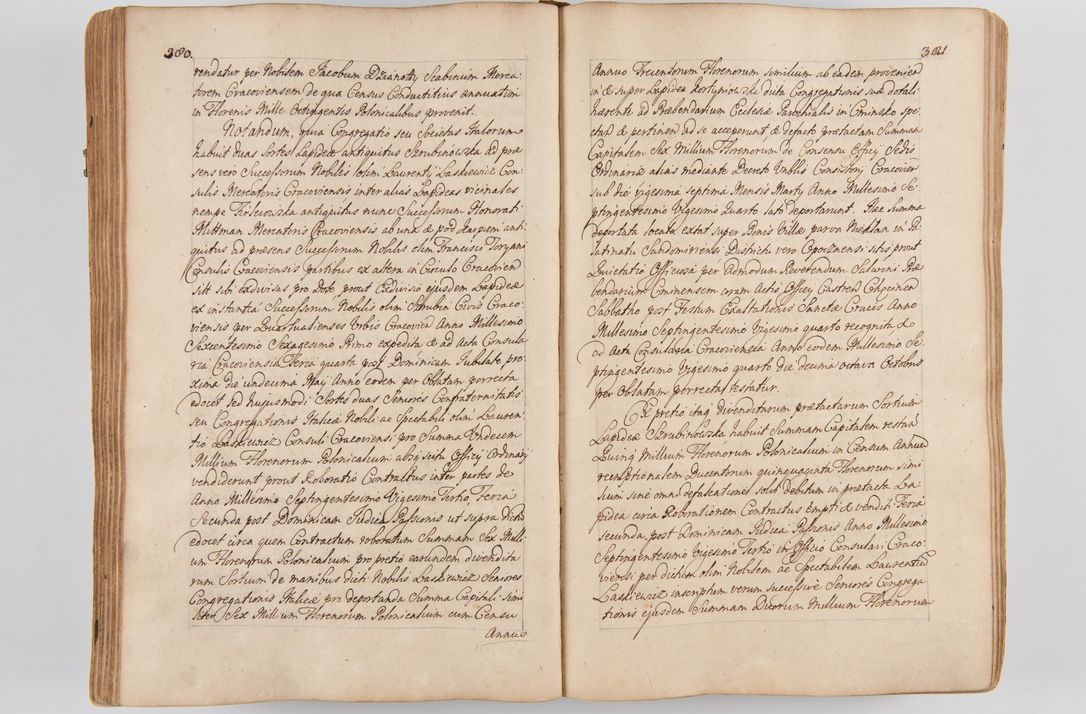 380.
rendatur per Nobilem Jacobum Dzianotty Scabinum Merca-
torem Cracoviensem de qua Census Conductitius annuatim
in Florenis Mille Octingentis Polonicalibus provenit.
Notandum, quia Congregatio seu Societas Italorum
habuit duas Sortes Lapideæ antiquitus Skrubinowska ad præ
sens vero Successorum Nobiles olim Laurenty Laskiewicz Con-
sulis Mercatoris Cracoviensis inter alias Lapideas vicinales
nempe antiquitus nunc Successorum Honorati
Mittman Mercatoris Cracoviensis ab una & pod Kaspiem anti
quitus ad præsens Successorum Nobilis olim Francisci Toryani
Consulis Cracoviensis partibus ex altera in Circulo Cracovien
sitt sibi exdivisas pro prout Exdivisio ejusdem Lapideæ
ex instantia Successorum Nobilis olim Skrubin Civis Craco-
viensis per Quartualienses Urbis Cracovien Anno Millesimo
Sexcentesimo Sexagesimo Primo expedita & ad Acta Consula
ria Cracoviensia Feria quarta post Dominicam Jubilate pro
xima die undecima Maij Anno eodem per Oblatam porrecta
edocet sed hujusmodi Sortes duas Seniores Confraternitatis
seu Congregationis Italicæ Nobili ac Spectabili olim Lauren-
tio Laskiewicz Consuli Cracoviensi pro Summa Undecem
Millium Florenorum Polonicalium absq scitu Officij Ordinarij
vendiderunt prout Roboratio Contractus inter partes de
Anno Millesimo Septingentesimo Vigesimo Tertio Feria
Secunda post Dominicam Judica Passionis ut supra
edocet circa quem Contractum roboratum Summam Sex Milli
um Florenorum Polonicalium pro pretio earundem divendita
rum Sortium de manibus dicti Nobilis Laskiewicz Seniores
Congregationis Italicæ pro deportanda Summa Capitali simi
liter Sex Millium Florenorum Polonicalium cum Censu
Annuo
381.
Annuo Trecentorum Florenorum similium ab eadem provenien
in & super Lapidea dicta Congregationis sub dotali
hærente ad Præbendarium Ecclesiæ Parochialis in Cminsko spe
ctan & pertinen ad se acceperunt & defacto prætactam Summam
Capitalem Sex Millium Florenorum de Consensu Officij Sedis
Ordinariæ alias mediante Decreto Consistorij Cracovien
sub die vigesima septima Mensis Martij Anno Millesimo Se-
ptingentesimo Vigesimo Quarto lato deportarunt. Hæc Summa
deportata locata extat super Bonis Villæ parva in Pa
latinatu Sandomiriensi Districtu vero sitis prout
Quietatio Officiosa per Admodum Reverendum Præ
bendarium Cminensem coram Actis Officij Castren Chęcinen
Sabbatho post Festum Exaltationis Sanctæ Crucis Anno
Millesimo Septingentesimo Vigesimo quarto recognita &
ad Acta Consularia Cracoviensia Anno eodem Millesimo Se-
ptingentesimo Vigesimo quarto die decima octava Octobris
per Oblatam porrecta testatur.
Ex pretio itaq divenditarum prætactarum Sortium
Lapideæ Skrubinowska habuit Summam Capitalem restan
Quinq Millium Florenorum Polonicalium in Censum Annuū
reemptionalem Ducentorum quinquaginta Florenorum simi
lium sine omni defalcatione solvi debitum in prætacta La-
pidea circa Roborationem Contractus empti & venditi Feria
secunda post Dominicam Judica Passionis Anno Millesimo
Septingentesimo Vigesimo Tertio in Officio Consulari Craco-
viensi per dictum olim Nobilem ac Spectabilem Laurentiū
Laskiewicz inscriptum verum successive Seniores Congrega
tionis ejusdem Summam Duorum Millium Florenorum